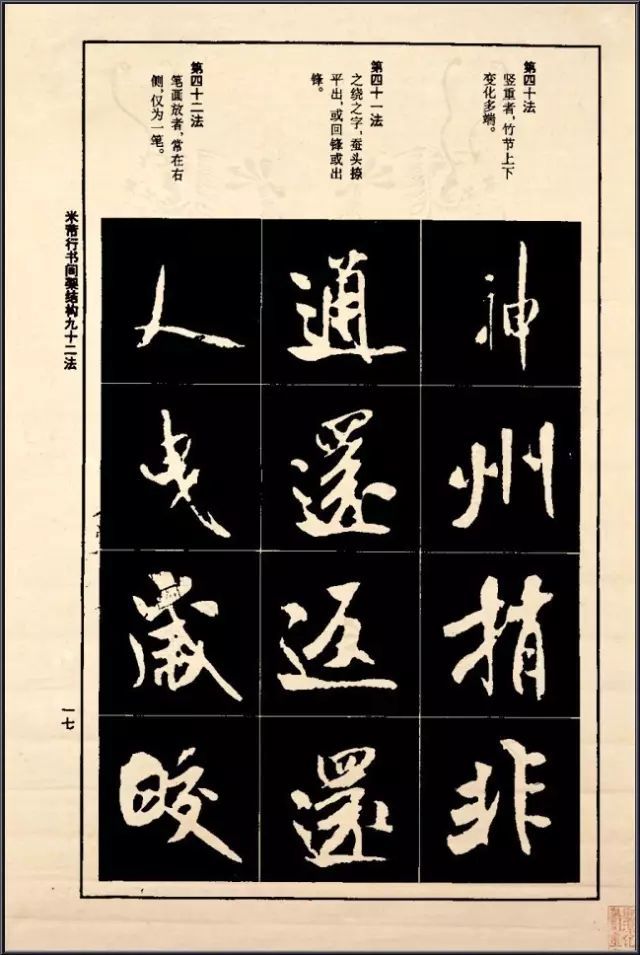 第四十法
竖重者,竹节上下
变化多端。
第四十一法
之绕之字,蚕头撩
平出,或回锋或出
锋。
第四十二法
笔画放者,常在右
侧,仅为一笔。
神
州
捎
非
通
还
返
还
人
曳
岁
皎
米芾行书间架结构九十二法
一七